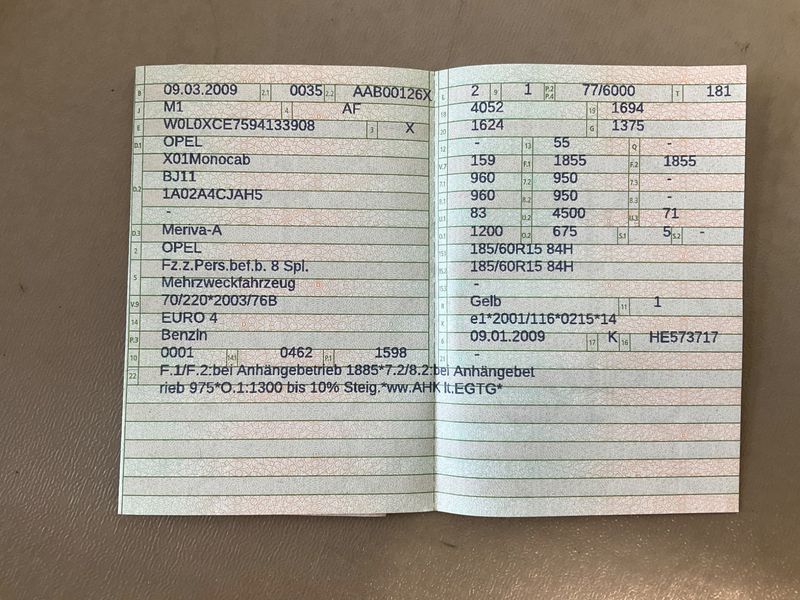 B 09.03.2009 2.1 0035 2.2 AAB00126X
J M1 4 AF
E W0L0XCE7594133908 3 X
D.1 OPEL
X01Monocab
D.2 BJ11
1A02A4CJAH5
-
D.3 Meriva-A
2 OPEL
5 Fz.z.Pers.bef.b. 8 Spl.
Mehrzweckfahrzeug
V.9 70/220*2003/76B
14 EURO 4
P.3 Benzin
10 0001 14.1 0462 P.1 1598
L 2 9 1 P.2 P.4 77/6000 T 181
18 4052 19 1694
20 1624 G 1375
12 - 13 55 Q -
V.7 159 F.1 1855 F.2 1855
7.1 960 7.2 950 7.3 -
8.1 960 8.2 950 8.3 -
U.1 83 U.2 4500 U.3 71
O.1 1200 O.2 675 S.1 5 S.2 -
15.1 185/60R15 84H
15.2 185/60R15 84H
15.3 -
R Gelb 11 1
K e1*2001/116*0215*14
6 09.01.2009 17 K 16 HE573717
21 -
22 F.1/F.2:bei Anhängebetrieb 1885*7.2/8.2:bei Anhängebet
rieb 975*O.1:1300 bis 10% Steig.*ww.AHK lt.EGTG*